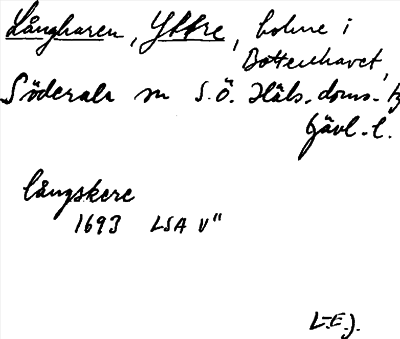 Långharen, Yttre, holme i
Bottenhavet,
Söderala sn S.Ö. Häls. doms. tg
Gävl. l.
långskere
1693 LSA V"
L.E.J.